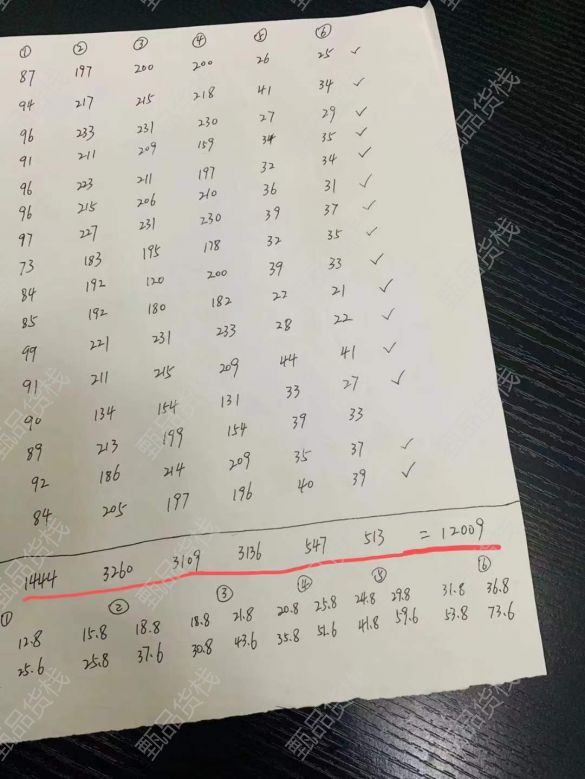 ① ② ③ ④ ⑤ ⑥
87 197 200 200 26 25 ✓
94 217 215 218 41 34 ✓
96 233 231 230 27 29 ✓
91 211 209 159 34 35 ✓
96 223 211 197 32 34 ✓
96 215 206 210 36 31 ✓
97 227 231 230 39 37 ✓
73 183 195 178 32 35 ✓
84 192 120 200 39 33 ✓
85 192 180 182 22 21 ✓
99 221 231 233 28 22 ✓
91 211 215 209 44 41 ✓
90 134 154 131 33 27 ✓
89 213 199 154 39 33
92 186 214 209 35 37 ✓
84 205 197 196 40 39 ✓
1444 3260 3109 3136 547 513 = 12009
① ② ③ ④ ⑤ ⑥
12.8 15.8 18.8 18.8 21.8 20.8 25.8 24.8 29.8 31.8 36.8
25.6 25.8 37.6 30.8 43.6 35.8 51.6 41.8 59.6 53.8 73.6
甄品货栈